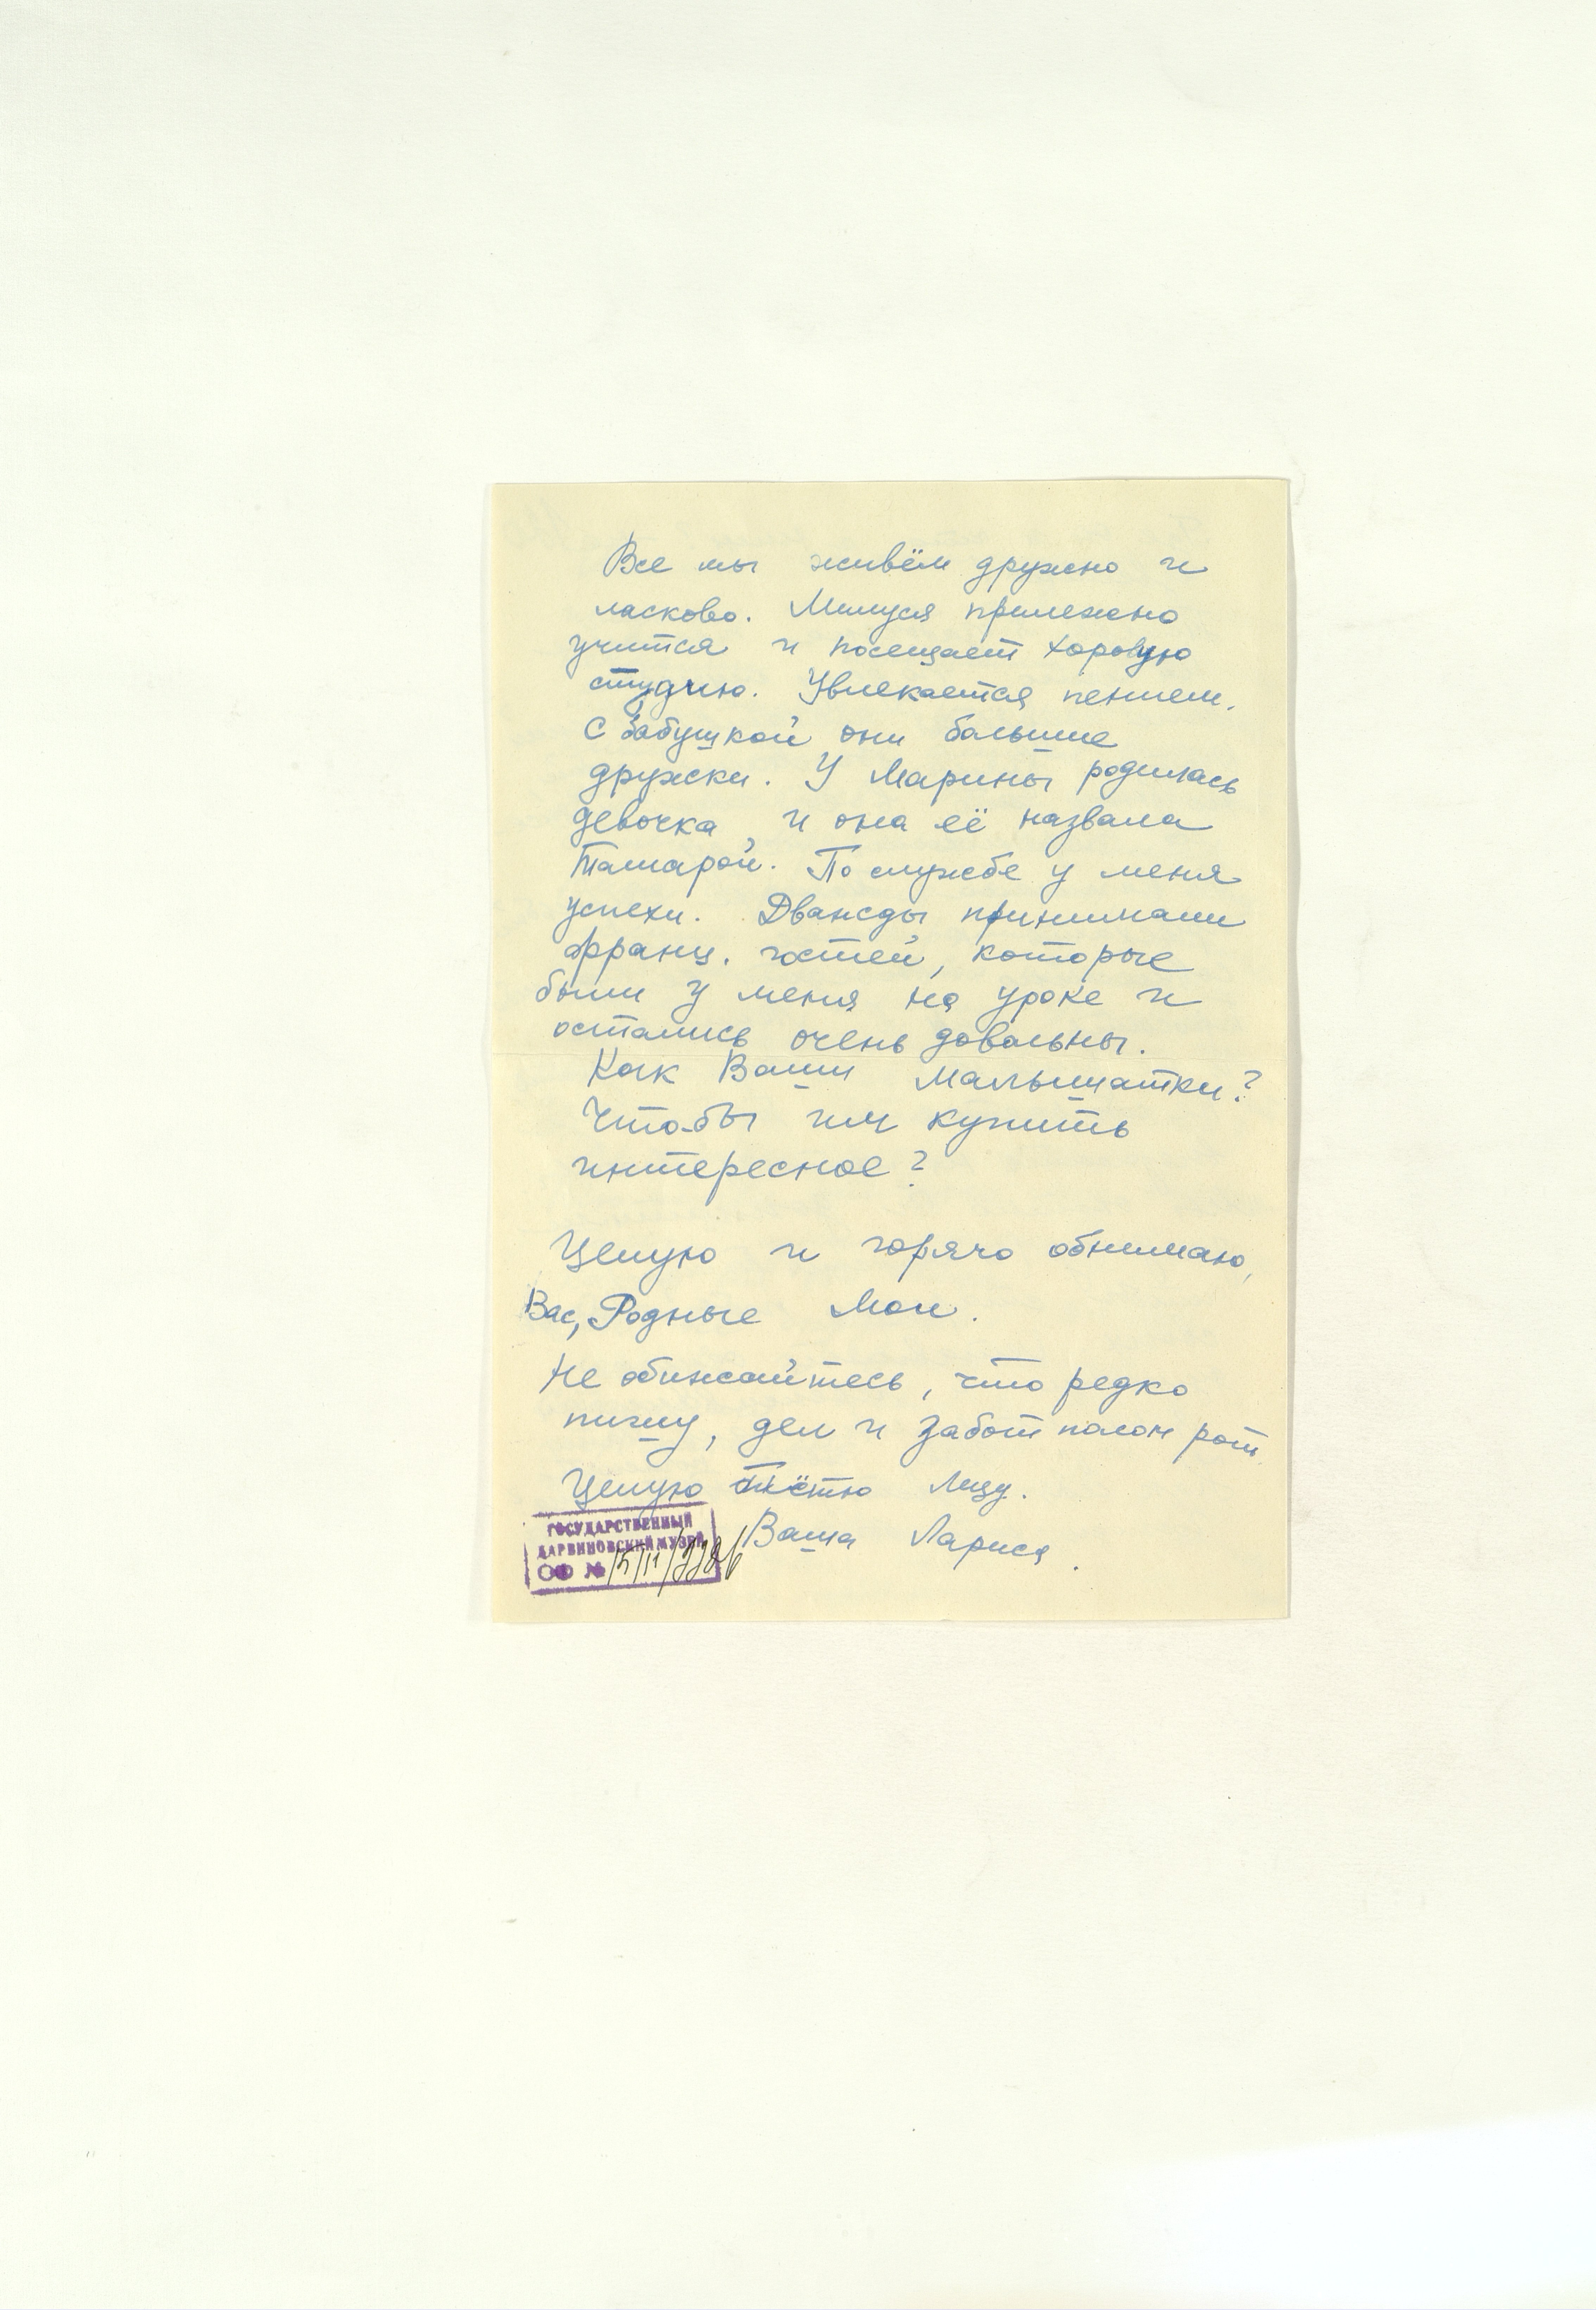 Все мы живём дружно и
ласково. Милуся прилежно
учится и посещает хоровую
студию. Увлекается пением.
С бабушкой они большие
дружки. У Марины родилась
девочка, и она её назвала
Тамарой. По службе у меня
успехи. Дважды принимали
франц. гостей, которые
были у меня на уроке и
остались очень довольны.
Как Ваши малышатки?
Что-бы им купить
интересное?
Целую и горячо обнимаю,
Вас, Родные Мои.
Не обижайтесь, что редко
пишу, дел и забот полон рот.
Целую тётю Лизу.
Ваша Лариса.
ГОСУДАРСТВЕННЫЙ
ДАРВИНОВСКИЙ МУЗЕЙ
ОФ №